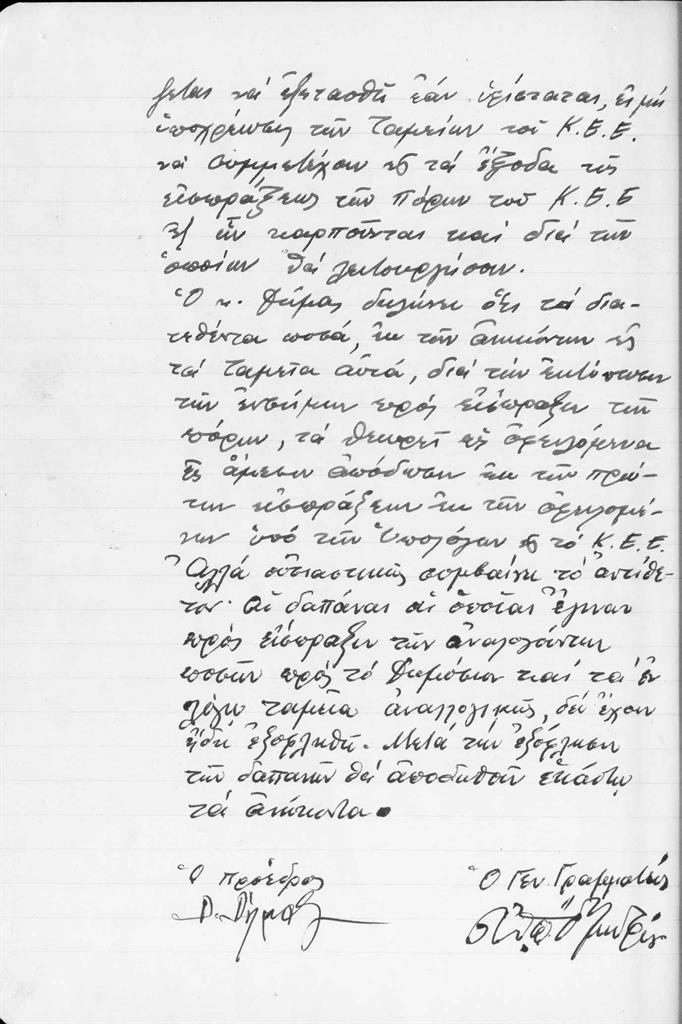 ζεται νά ἐξετασθῇ ἐάν ὑφίσταται, εἰ μή
ὑποχρέωσις τῶν Ταμείων τοῦ Κ.Ε.Ε.
νά συμμετέχουν εἰς τά ἔξοδα τῆς
εἰσπράξεως τῶν πόρων τοῦ Κ.Ε.Ε
ἐξ ὧν καρποῦνται καί διά τῶν
ὁποίων θά λειτουργήσουν.
Ὁ κ. Δήμας δηλώνει ὅτι τά δια-
τεθέντα ποσά, ἐκ τῶν ἀνηκόντων εἰς
τά ταμεῖα αὐτά, διά τήν ἐκτύπωσιν
τῶν ἐνσήμων πρός εἴσπραξιν τῶν
πόρων, τά θεωρεῖ ὡς ὀφειλόμενα
εἰς ἄμεσον ἀπόδοσιν ἐκ τῶν πρώ-
των εἰσπράξεων ἐκ τῶν ὀφειλομέ-
νων ὑπό τῶν Ὑπολόγων εἰς τό Κ.Ε.Ε.
Ἀλλά οὐσιαστικῶς συμβαίνει τό ἀντίθε-
τον. Αἱ δαπάναι αἱ ὁποῖαι ἔγιναν
πρός εἴσπραξιν τῶν ἀναλογούντων
ποσῶν πρός τό Δημόσιον καί τά ἐν
λόγῳ ταμεῖα ἀναλογικῶς, δέν ἔχουν
ἤδη ἐξοφληθῆ. Μετά τήν ἐξόφλησιν
τῶν δαπανῶν θά ἀποδοθοῦν ἑκάστῳ
τά ἀνήκοντα.
Ὁ Πρόεδρος Ὁ Γεν. Γραμματεύς
Δ. Δήμας